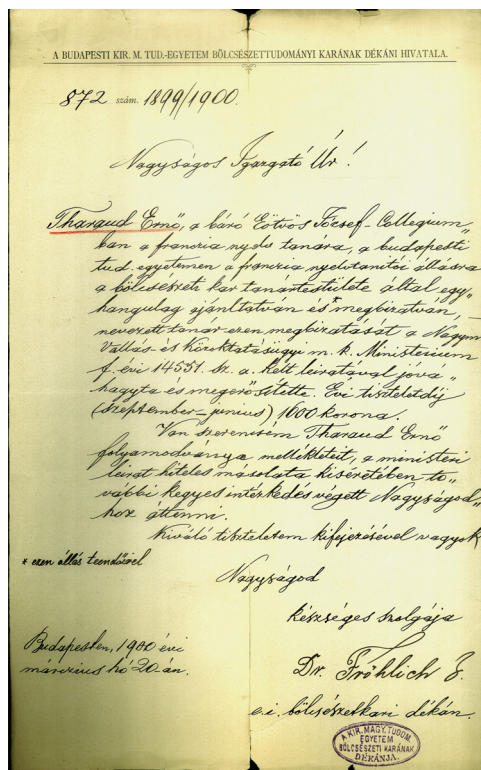 A BUDAPESTI KIR. M. TUD.-EGYETEM BÖLCSÉSZETTUDOMÁNYI KARÁNAK DÉKÁNI HIVATALA.
872 szám. 1899/1900.
Nagyságos Igazgató Úr!
Tharaud Ernő, a báró Eötvös József-Collegium"
ban a franczia nyelv tanára, a budapesti
tud. egyetemen a franczia nyelvtanítói állásra
a bölcsészeti kar tanártestülete által egy"
hangulag ajánltatván és * megbizatván, –
nevezett tanár ezen megbizatását a Nagym
Vallás- és Közoktatásügyi m. k. Ministerium
f. évi 14551. sz. a. kelt leiratával jóvá"
hagyta és megerősítette. Évi tiszteletdíj
(szeptember–junius) 1600 korona.
Van szerencsém Tharaud Ernő
folyamodványa mellékleteit, a ministeri
leirat hiteles másolata kíséretében to"
vábbi kegyes intézkedés végett Nagyságod"
hoz áttenni.
Kiváló tiszteletem kifejezésével vagyok
* ezen állás teendőivel
Nagyságod
készséges szolgája
Budapesten, 1900 évi
márczius hó 20 án.
Dr. Fröhlich I.
e. i. bölcsészetkari dékán.
A KIR. MAGY. TUDOM.
EGYETEM
BÖLCSÉSZETI KARÁNAK
DÉKÁNJA.